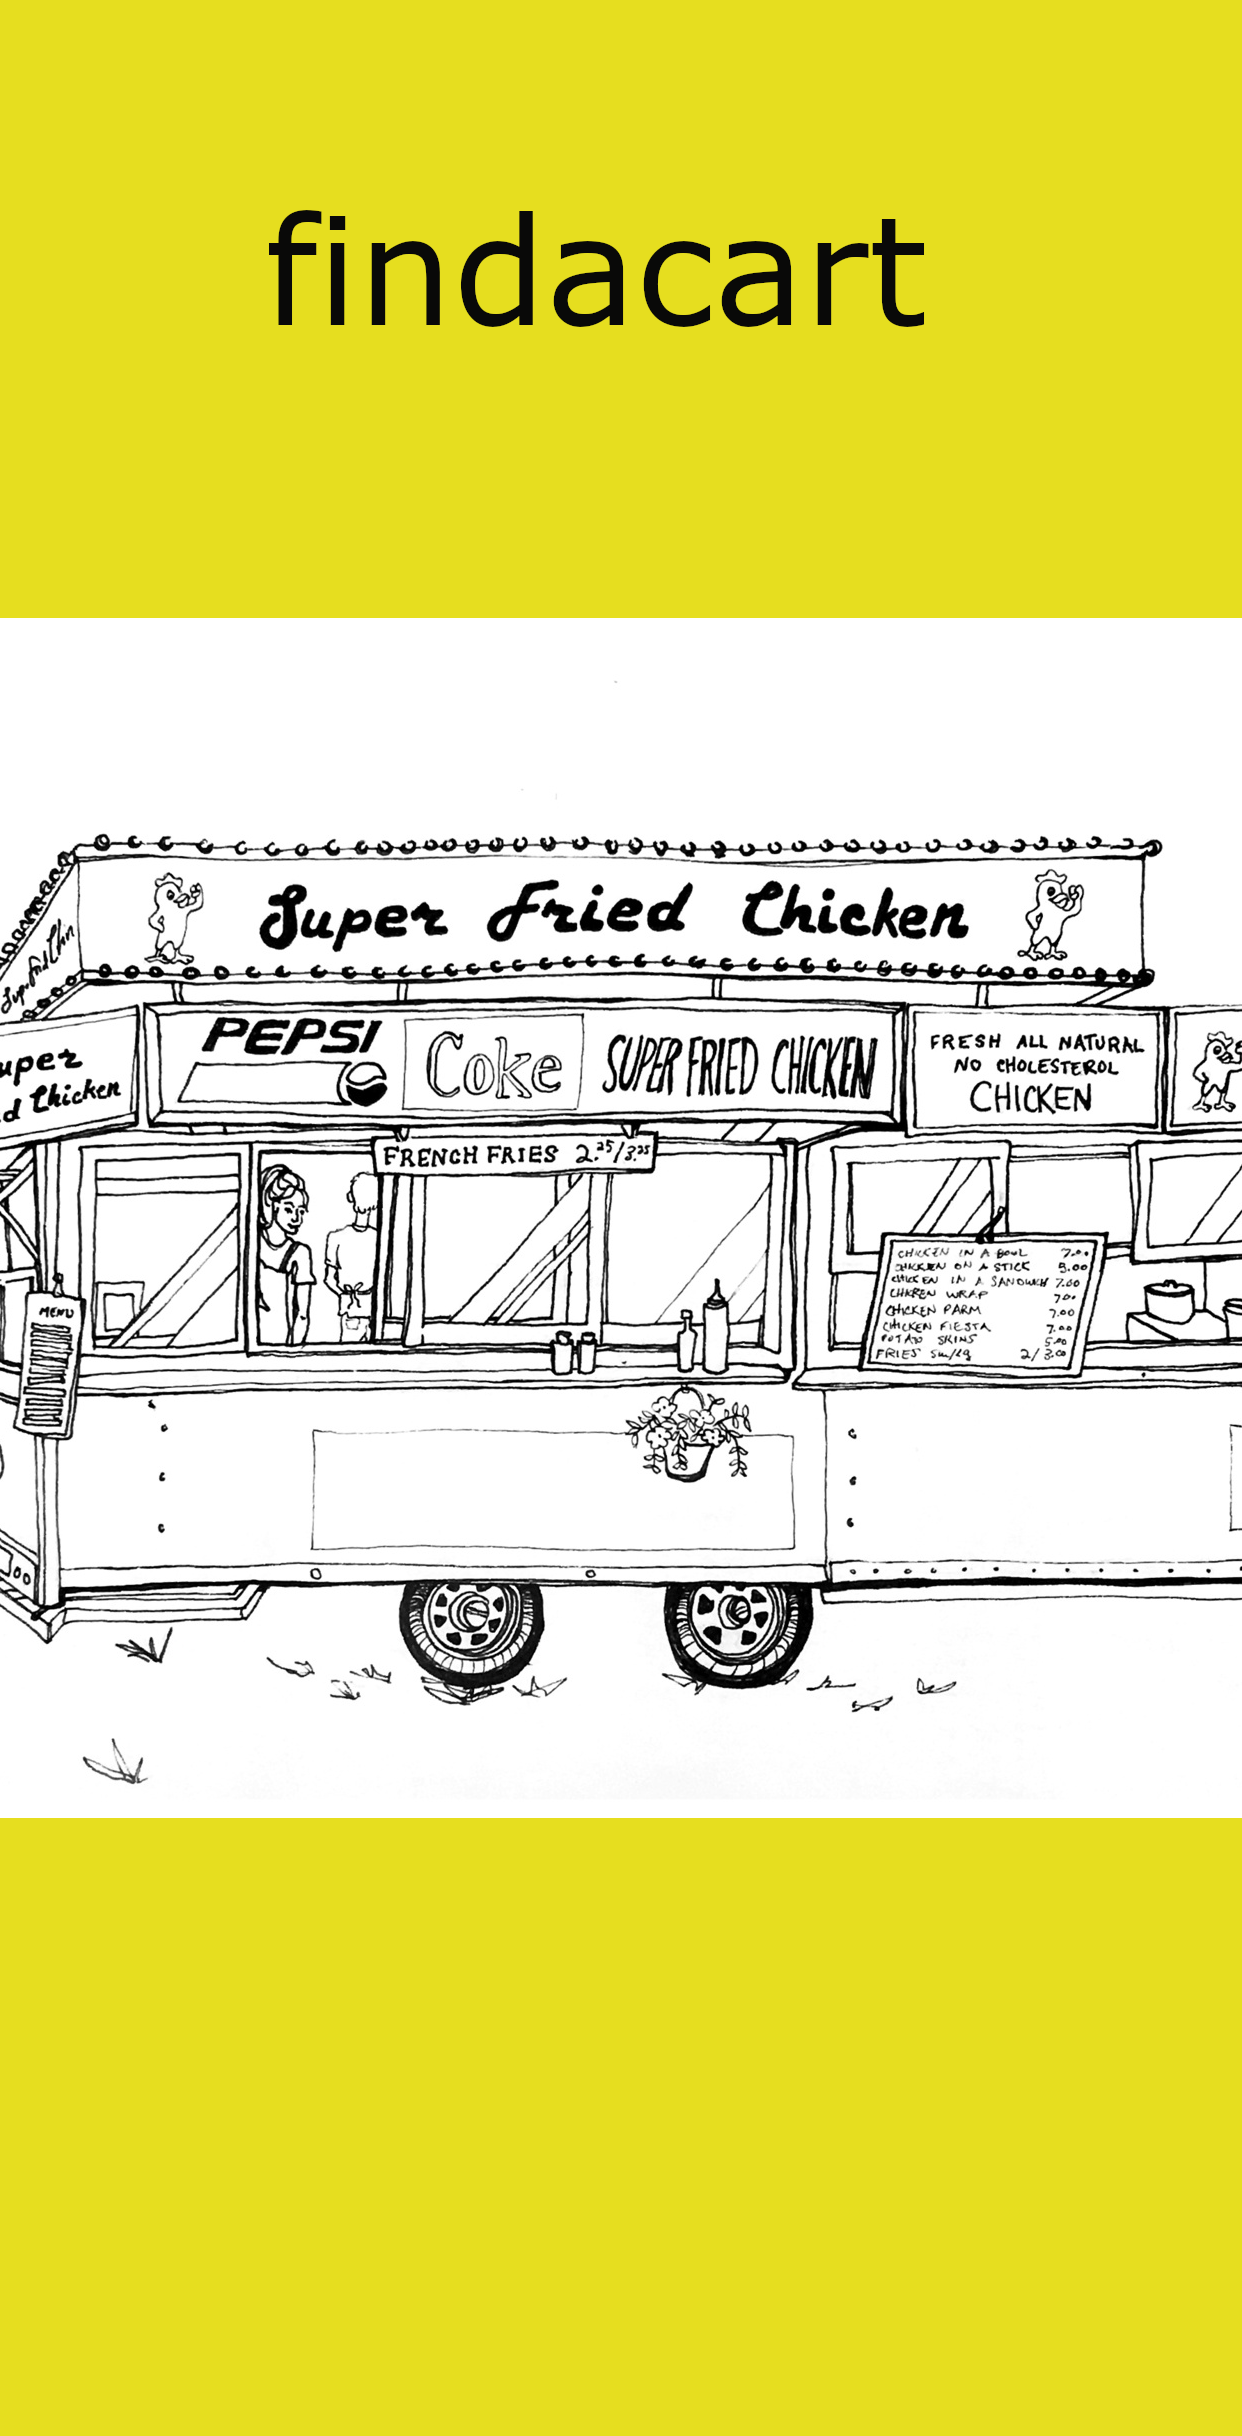 findacart
Super Fried Chicken
Super Fried Chicken
PEPSI
Coke
SUPER FRIED CHICKEN
FRESH ALL NATURAL
NO CHOLESTEROL
CHICKEN
uper
d Chicken
FRENCH FRIES 2.25/3.25
MENU
CHICKEN IN A BOWL 7.00
CHICKEN ON A STICK 5.00
CHICKEN IN A SANDWICH 7.00
CHICKEN WRAP 7.00
CHICKEN PARM 7.00
CHICKEN FIESTA 7.00
POTATO SKINS 5.00
FRIES sm/Lg 2/3.00